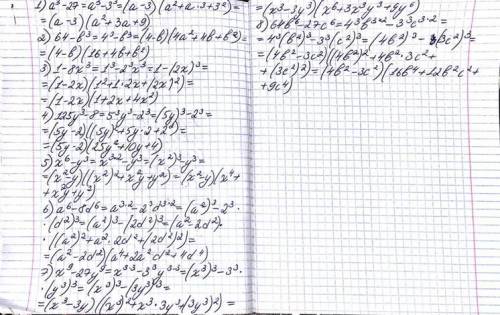 1) a³-27=a³-3³=(a-3)(a²+a·3+3²)=
=(a-3)(a²+3a+9)
2) 64-b³=4³-b³=(4-b)(4a²+4b+b²)=
=(4-b)(16+4b+b²)
3) 1-8x³=1³-2³x³=1-(2x)³=
=(1-2x)(1²+1·2x+(2x)²)=
=(1-2x)(1+2x+4x²)
4) 125y³-8=5³y³-2³=(5y)³-2³=
=(5y-2)((5y)²+5y·2+2²)=
=(5y-2)(25y²+10y+4)
5) x⁶-y³=x³·²-y³=(x²)³-y³=
=(x²-y)((x²)²+x²y+y²)=(x²-y)(x⁴+
+x²y+y²)
6) a⁶-8d⁶=a³·²-2³d³·²=(a²)³-2³·
·(d²)³=(a²)³-(2d²)³=(a²-2d²)·
·((a²)²+a²·2d²+(2d²)²)=
=(a²-2d²)(a⁴+2a²d²+4d⁴)
7) x⁹-27y⁹=x³·³-3³y³·³=(x³)³-3³·
·(y³)³=(x³)³-(3y³)³=
=(x³-3y³)((x³)²+x³·3y³+(3y³)²)=
=(x³-3y³)(x⁶+3x³y³+9y⁶)
8) 64b⁶-27c⁶=4³b³·²-3³c³·²=
=4³(b²)³-3³(c²)³=(4b²)³-(3c²)³=
=(4b²-3c²)((4b²)²+4b²·3c²+
+(3c²)²)=(4b²-3c²)(16b⁴+12b²c²+
+9c⁴)